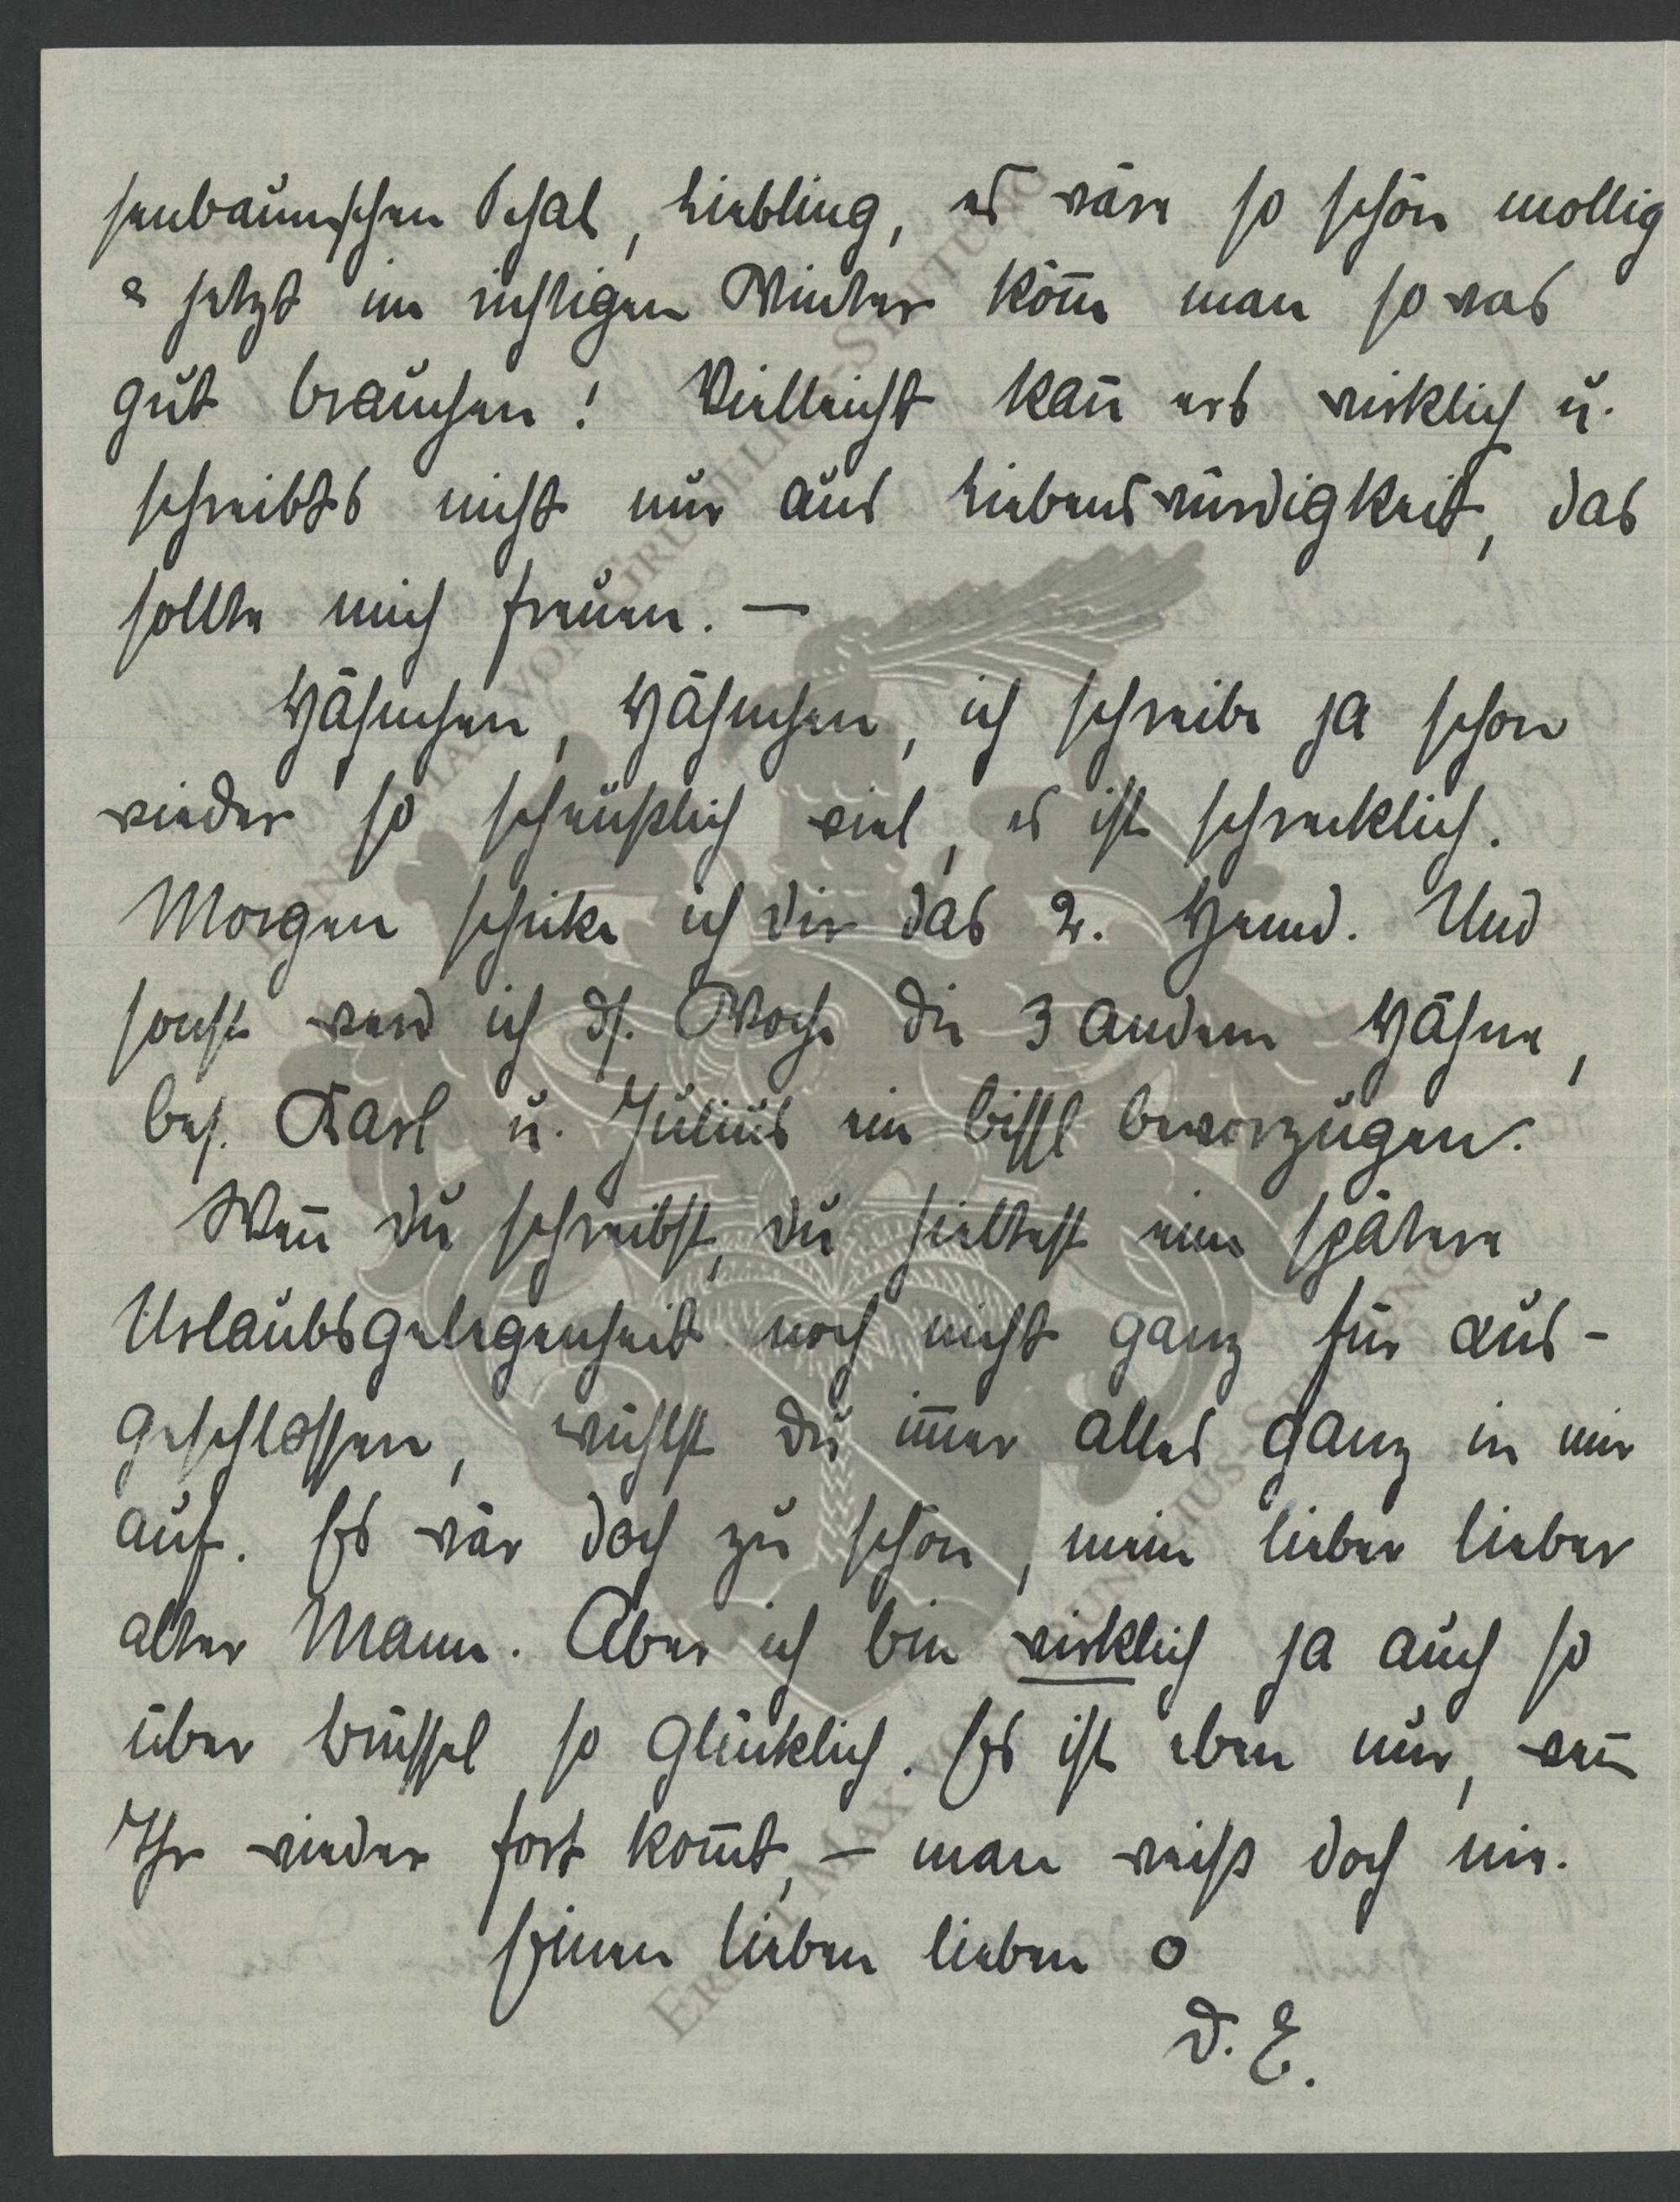 senbaumschen Schal, Liebling, es wäre so schön mollig
& jetzt im richtigen Winter kön̄e man so was
gut brauchen! Vielleicht kan̄ ers wirklich u.
schreibts nicht nur aus Liebenswürdigkeit, das
sollte mich freuen. —
Hähnchen, Hähnchen, ich schreibe ja schon
wieder so scheußlich viel, es ist schrecklich.
Morgen schicke ich dir das 2. Hemd. Und
sonst werd ich ds. Woche die 3 andern Hähne,
bes. Karl u. Julius ein bissl bevorzugen.
Wen̄ du schreibst, du hieltest eine spätere
Urlaubsgelegenheit noch nicht ganz für aus-
geschlossen, wühlst du im̄er alles ganz in mir
auf. Es wär doch zu schön, mein lieber lieber
alter Mann. Aber ich bin wirklich ja auch so
über Brüssel so glücklich. Es ist eben nur, wen̄
Ihr wieder fort kom̄t, — man weiß doch nie.
Einen lieben lieben o
D. E.
ERNST MAX VON GRUNELIUS-STIFTUNG
ERNST MAX VON GRUNELIUS-STIFTUNG